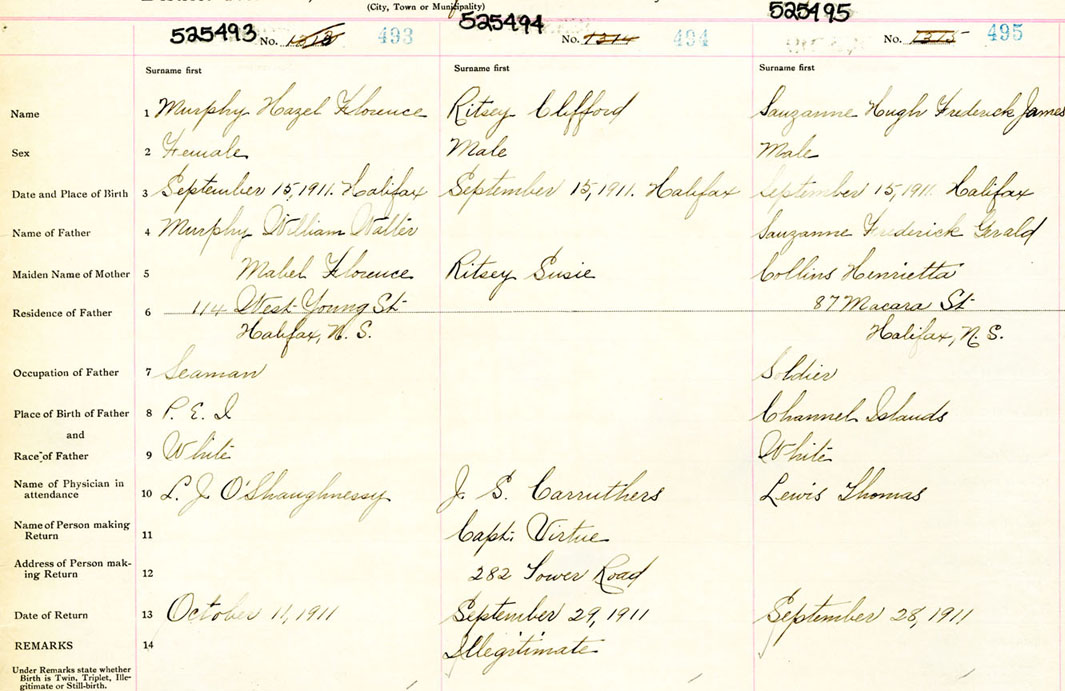 (City, Town or Municipality)
525493 No. 1313 493 525494 No. 1314 494 525495 No. 1315 495
Surname first Surname first Surname first
Name 1 Murphy Hazel Florence Ritsey Clifford Sauzanne Hugh Frederick James
Sex 2 Female Male Male
Date and Place of Birth 3 September 15, 1911. Halifax September 15, 1911. Halifax September 15, 1911. Halifax
Name of Father 4 Murphy William Walter Sauzanne Frederick Gerald
Maiden Name of Mother 5 Mabel Florence Ritsey Susie Collins Henrietta
Residence of Father 6 114 West Young St 87 Macara St
Halifax, N. S. Halifax, N. S.
Occupation of Father 7 Seaman Soldier
Place of Birth of Father 8 P. E. I Channel Islands
and
Race of Father 9 White White
Name of Physician in
attendance 10 L. J. O'Shaughnessy J. S. Carruthers Lewis Thomas
Name of Person making
Return 11 Capt. Virtue
Address of Person mak-
ing Return 12 282 Tower Road
Date of Return 13 October 11, 1911 September 29, 1911 September 28, 1911
REMARKS 14 Illegitimate
Under Remarks state whether
Birth is Twin, Triplet, Ille-
gitimate or Still-birth.